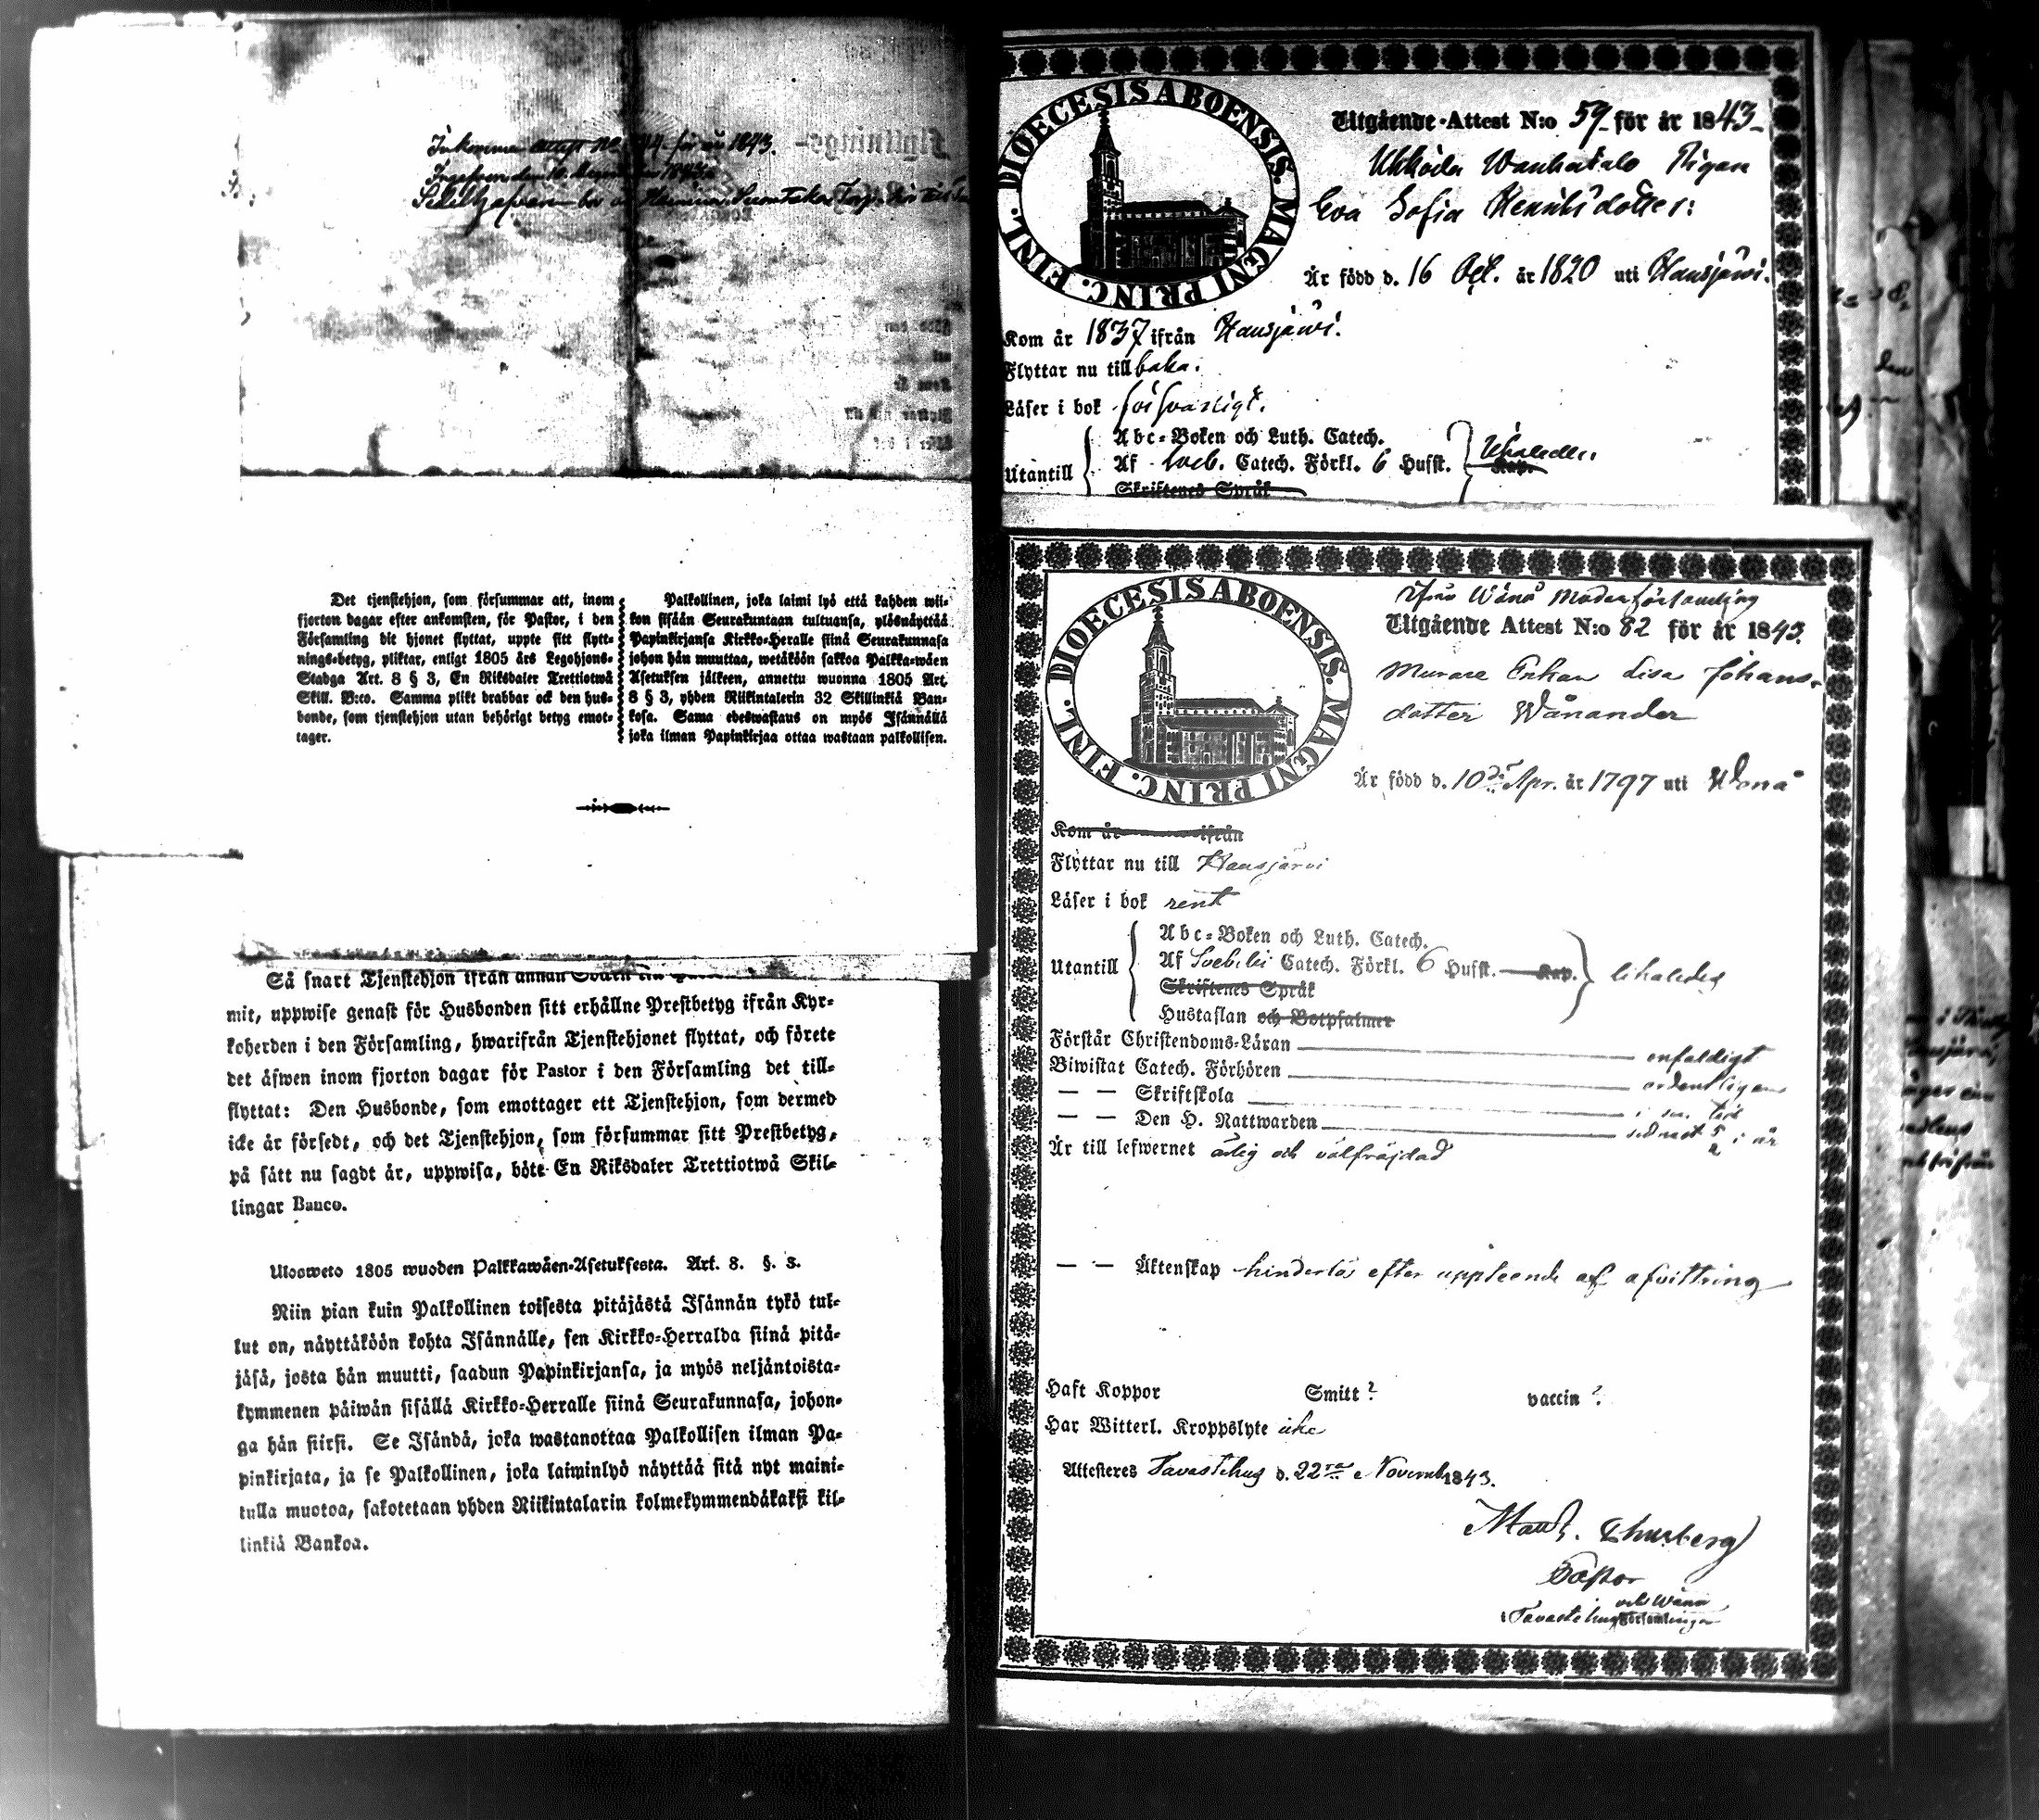 Inkommen attest no 144 för år 1843.
Sedelhafvaren bor
Det tjenstehjon, som försummar att, inom
fjorton dagar efter ankomsten, för Pastor, i den
Församling dit hjonet flyttat, uppte sitt flytt-
nings-betyg, pliktar, enligt 1805 års Legohjons-
Stadga Art. 8 § 3, En Riksdaler Trettiotwå
Skill. B:co. Samma plikt drabbar ock den hus-
bonde, som tjenstehjon utan behörigt betyg emot-
tager.
Palkollinen, joka laimi lyö että kahden wii-
kon sisään Seurakuntaan tultuansa, ylösnäyttää
Papinkirjansa Kirkko-Heralle siinä Seurakunnasa
johon hän muuttaa, wetäköön sakkoa Palkka-wäen
Asetuksen jälkeen, annettu wuonna 1805 Art.
8 § 3, yhden Riikintalerin 32 Skillinkiä Ban-
kosa. Sama edeswastaus on myös Isännällä
joka ilman Papinkirjaa ottaa wastaan palkollisen.
Så snart Tjenstehjon ifrån annan
mit, uppwise genast för Husbonden sitt erhållne Prestbetyg ifrån Kyr-
koherden i den Församling, hwarifrån Tjenstehjonet flyttat, och förete
det äfwen inom fjorton dagar för Pastor i den Församling det till-
flyttat: Den Husbonde, som emottager ett Tjenstehjon, som dermed
icke är försedt, och det Tjenstehjon, som försummar sitt Prestbetyg,
på sätt nu sagdt är, uppwisa, böte En Riksdaler Trettiotwå Skil-
lingar Banco.
Ulosweto 1805 wuoden Palkkawäen-Asetuksesta. Art. 8. §. 3.
Niin pian kuin Palkollinen toisesta pitäjästä Isännän tykö tul-
lut on, näyttäköön kohta Isännälle, sen Kirkko-Herralda siinä pitä-
jäsä, josta hän muutti, saadun Papinkirjansa, ja myös neljäntoista-
kymmenen päiwän sisällä Kirkko-Herralle siinä Seurakunnasa, johon-
ga hän siirsi. Se Isändä, joka wastanottaa Palkollisen ilman Pa-
pinkirjata, ja se Palkollinen, joka laiminlyö näyttää sitä nyt maini-
tulla muotoa, sakotetaan yhden Riikintalarin kolmekymmendäkaksi kil-
linkiä Bankoa.
DIOECESIS ABOENSIS. MAGNI PRINC. FINL.
Utgående-Attest N:o 59 för år 1843
Wanhatalo Pigan
Eva Sofia Henriksdotter:
Är född d. 16 Oct. år 1820 uti Hausjärwi.
Kom år 1837 ifrån Hausjärwi.
Flyttar nu till baka.
Läser i bok försvarligt.
Utantill
Abc-Boken och Luth. Catech.
Af Sveb. Catech. Förkl. 6 Hufst. Kap.
Skriftenes Språk
DIOECESIS ABOENSIS. MAGNI PRINC. FINL.
Ifrån Wånå Moderförsamling
Utgående Attest N:o 82 för år 1843.
Murare Enkan Lisa Johans-
dotter Wånander
Är född d. 10de Apr. år 1797 uti Wånå
Kom år ifrån
Flyttar nu till Hausjärvi
Läser i bok rent
Utantill
Abc-Boken och Luth. Catech.
Af Svebilii Catech. Förkl. 6 Hufst. Kap. likaledes
Skriftenes Språk
Hustaflan och Botpsalmer
Förstår Christendoms-Läran enfaldigt
Biwistat Catech. Förhören ordentligen
— — Skriftskola i sin tid
— — Den H. Nattwarden sednast 5/2 i år
Är till lefwernet ärlig och välfräjdad
— — Äktenskap hinderlös efter uppteende af afvittring
Haft Koppor Smitt? vaccin?
Har Witterl. Kroppslyte icke
Attesteres Tavastehus d. 22ra Novemb 1843.
Math. Thurberg
Pastor
och Wånå
i Tavastehus Församlingar